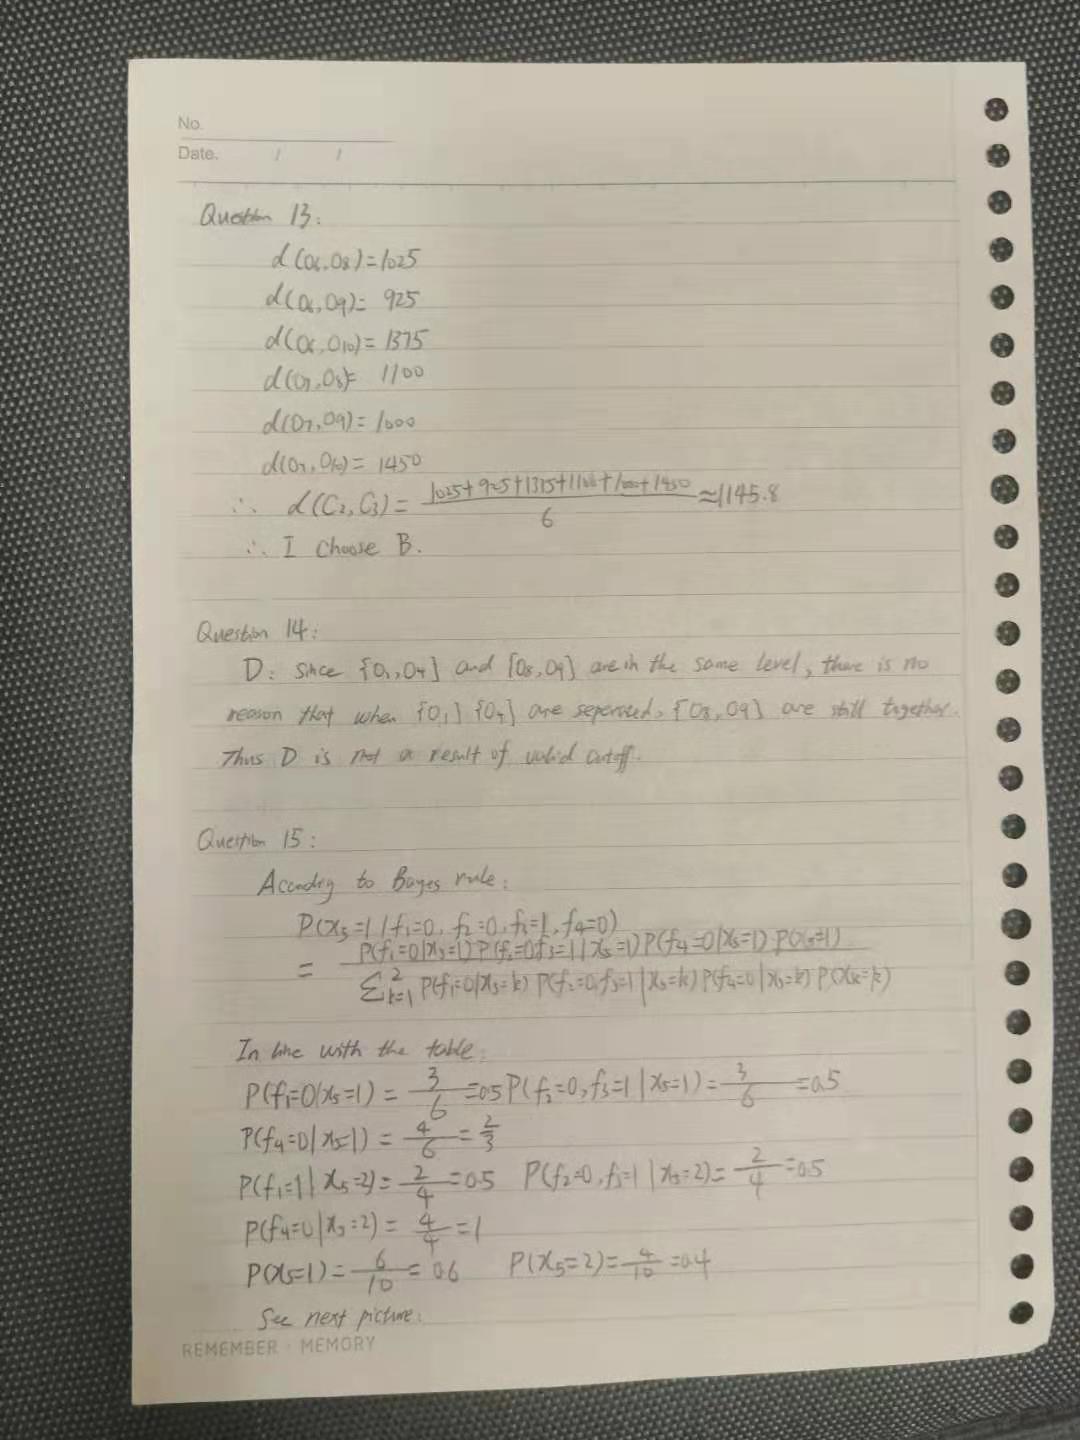 No.
Date. / /
Question 13:
d(O6,O8)=1025
d(O6,O9)= 925
d(O6,O10)= 1375
d(O7,O8)= 1100
d(O7,O9)= 1000
d(O7,O10)= 1450
∴ d(C2,C3) = (1025+925+1375+1100+1000+1450)/6 ≈1145.8
∴ I choose B.
Question 14:
D: Since {O1,O4} and {O8,O9} are in the same level, there is no
reason that when {O1} {O4} are seperated, {O8,O9} are still together.
Thus D is not a result of valid cutoff.
Question 15:
According to Bayes rule:
P(x5=1|f1=0, f2=0, f3=1, f4=0)
= P(f1=0|x5=1) P(f2=0,f3=1|x5=1) P(f4=0|x5=1) P(x5=1) / Σ²k=1 P(f1=0|x5=k) P(f2=0,f3=1|x5=k) P(f4=0|x5=k) P(x5=k)
In line with the table:
P(f1=0|x5=1) = 3/6 =0.5 P(f2=0,f3=1|x5=1) = 3/6 =0.5
P(f4=0|x5=1) = 4/6 = 2/3
P(f1=1|x5=2) = 2/4 =0.5 P(f2=0,f3=1|x5=2) = 2/4 =0.5
P(f4=0|x5=2) = 4/4 =1
P(x5=1) = 6/10 = 0.6 P(x5=2) = 4/10 =0.4
See next picture.
REMEMBER · MEMORY